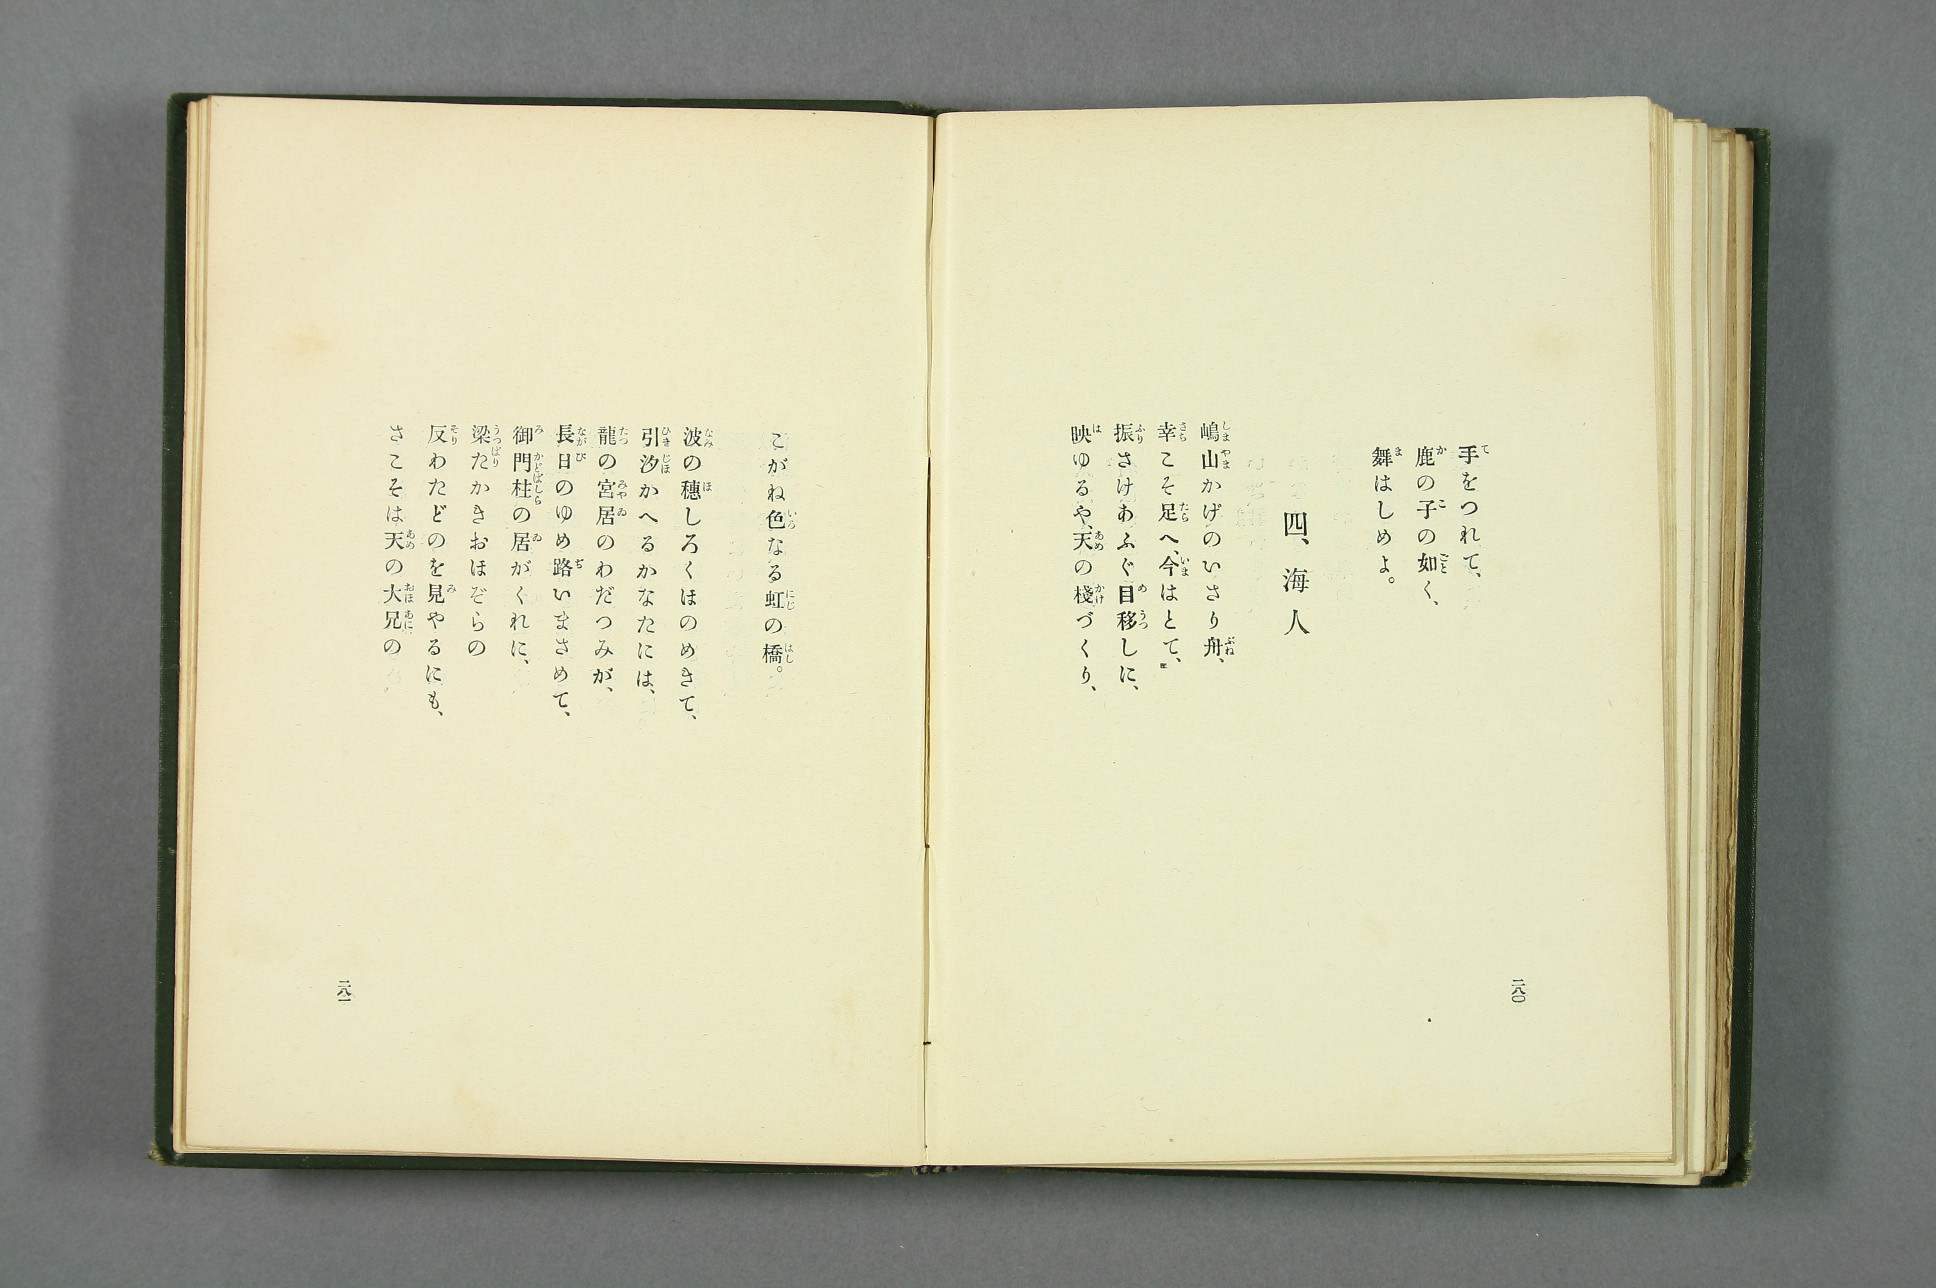 手をつれて、
鹿の子の如く、
舞はしめよ。
四、海人
嶋山かげのいさり舟、
幸こそ足へ、今はとて、
振さけあふぐ目移しに、
映ゆるや、天の棧づくり、
二八〇
こがね色なる虹の橋。
波の穗しろくほのめきて、
引汐かへるかなたには、
龍の宮居のわだつみが、
長日のゆめ路いまさめて、
御門柱の居がくれに、
梁たかきおほぞらの
反わたどのを見やるにも、
さこそは天の大兄の
二八一